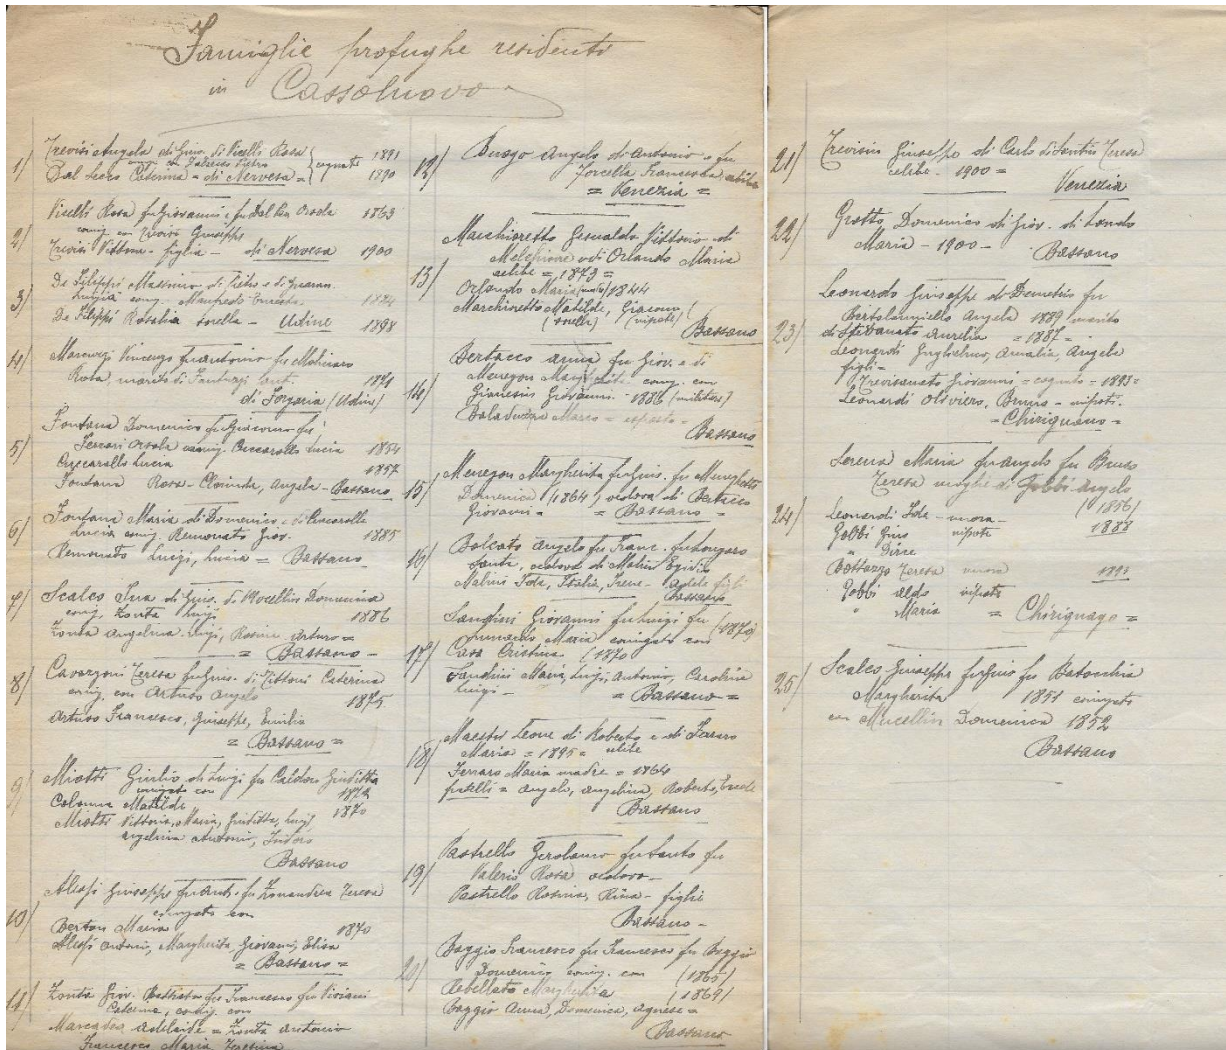 Famiglie profughe residenti
in Cassolnovo
1/ Trevisi Angela di Gius. di Vicelli Rosa 1891
Dal Caterina = di Nervesa = cognate 1890
2/ Vicelli Rosa fu Giovanni e fu Dal Orsola 1863
coniug. con Trevisi Giuseppe
Trevisi Vittoria - figlia - di Nervesa 1900
3/ De Filippi Massimo di Pietro e di
Luigia coniug. Manfredo
De Filippi Rosalia sorella - Udine 1898
4/ Vincenzo fu Antonio fu Molinaro
Rosa, marito di Fantuzzi Ant. 1871
di Forgaria (Udine)
5/ Fontana Domenico fu Giacomo fu
Ferrari Orsola coniug. Lucia 1854
Lucia 1857
Fontana Rosa - Clorinda, Angela - Bassano
6/ Fontana Maria di Domenico e di
Lucia coniug. Remonato Giov. 1885
Remonato Luigi, Lucia = Bassano
7/ Scalco di Gius. di Mocellin Domenica
coniug. Zonta Luigi 1886
Zonta Angelina, Luigi, Rosina, Arturo =
= Bassano -
8/ Teresa fu Gius. di Tittoni Caterina
coniug. con Artuso Angelo 1875
Artuso Francesco, Giuseppe, Emilia
= Bassano =
9/ Miotti Giulio di Luigi fu Giuditta
coniugato con 1872
Colonna Matilde 1870
Miotti Vittorio, Maria, Giuditta, Luigi
Angelina Antonio, Isidoro
Bassano
10/ Alessi Giuseppe fu Ant. fu Teresa
coniugato con
Berton Maria 1870
Alessi Antonio, Margherita, Giovanni, Elisa
= Bassano =
11/ Zonta Giov. Battista fu Francesco fu Viviani
Caterina, coniug. con
Adelaide = Zonta Antonio
Francesco Maria
12/ Busgo Angelo di Antonio e fu
Forcella Francesca celibe
= Venezia =
13/ Marchioretto Gesualdo Vittorio di
e di Orlando Maria
celibe = 1873 =
Orlando Maria (madre) 1844
Marchioretto Matilde, Giacomo
(sorella) (nipote)
Bassano
14/ Bertacco Anna fu Giov. e di
Menegon Margherita coniug. con
Gianesin Giovanni - 1886 (militare)
Marco = esposto -
Bassano
15/ Menegon Margherita fu Gius. fu
Domenica (1864) vedova di Bertacco
Giovanni = = Bassano =
16/ Angelo fu Franc. fu Longaro
Santa, vedova di Malini Egidio
Malini Ida, Italia, Irene - Adele figli
Bassano
17/ Sandini Giovanni fu Luigi fu (1870)
Maria coniugato con
Casa Cristina (1870
Sandini Maria, Luigi, Antonio, Carolina
Luigi - = Bassano =
18/ Maestri Leone di Roberto e di Ferraro
Maria = 1895 = celibe
Ferraro Maria madre = 1864
fratelli = Angelo, Angelina, Roberto,
Bassano
19/ Pastrello Gerolamo fu Santo fu
Valerio Rosa vedovo -
Pastrello Rosina, Rina - figlie
Bassano -
20/ Baggio Francesco fu Francesco fu Baggio
Domenica coniug. con (1865)
Rebellato Margherita (1869)
Baggio Anna, Domenica, Agnese =
Bassano
21/ Trevisin Giuseppe di Carlo di Santin Teresa
celibe - 1900 =
Venezia
22/ Grotto Domenico di Giov. di Tondo
Maria - 1900 - Bassano
23/ Leonardo Giuseppe di Demetrio fu
Angela 1889 marito
di Aurelia = 1887 =
Leonardi Guglielmo, Amalia, Angela
figli =
Trevisanato Giovanni = cognato - 1893 =
Leonardi Oliviero, Bruno - nipoti.
= Chirignano =
24/ Serena Maria fu Angelo fu
Teresa moglie di Gobbi Angelo
(1856)
Leonardi Ida - nuora - 1888
Gobbi Gino nipote
" Dirce
Bottazzo Teresa nuora 1893
Gobbi Aldo nipote
" Maria = Chirignago =
25/ Scalco Giuseppe fu Gius fu Batocchia
Margherita 1851 coniugato
con Mucellin Domenica 1852
Bassano